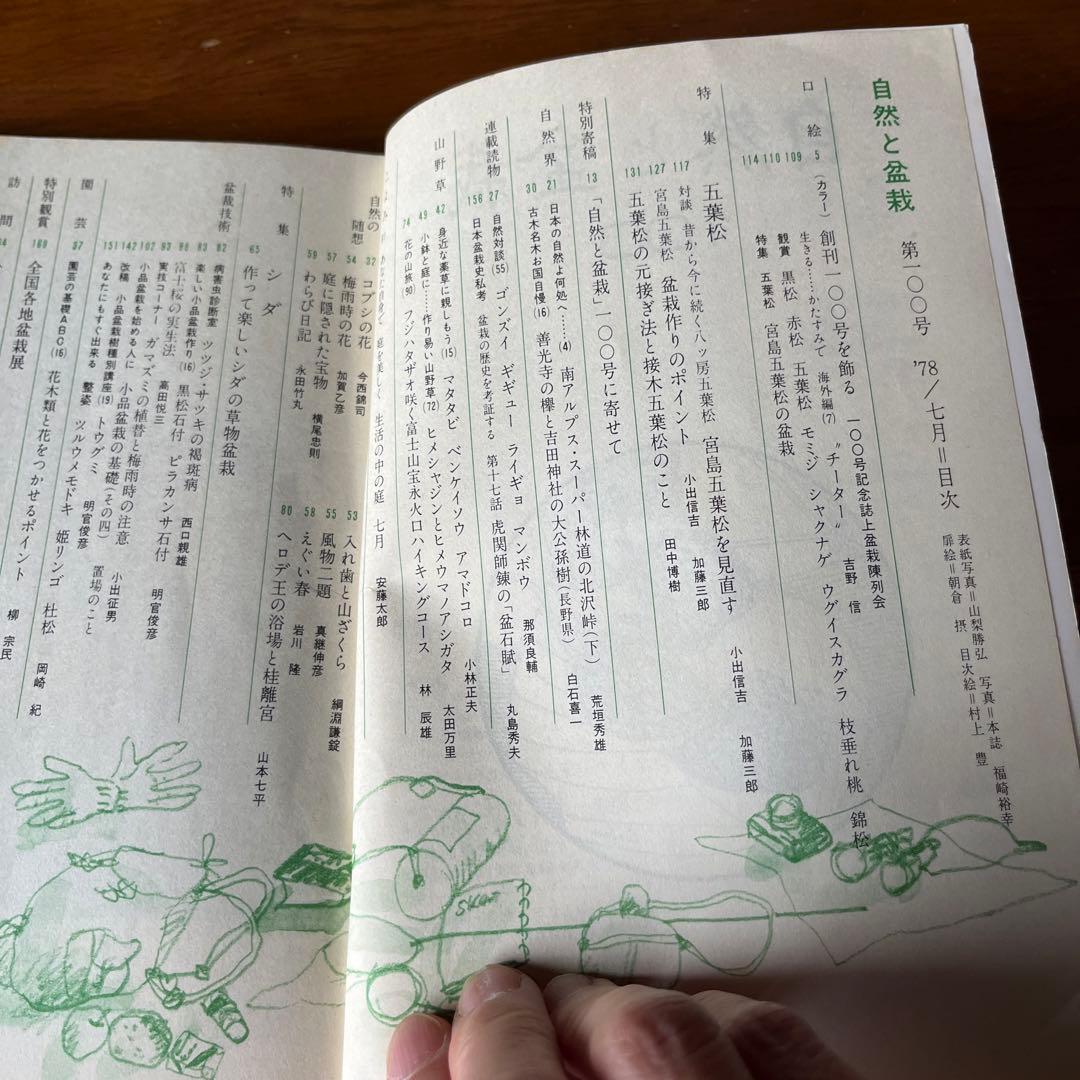 自然と盆栽 第一〇〇号 '78/七月＝目次
表紙写真＝山梨勝弘 写真＝本誌 福崎裕幸
扉絵＝朝倉 摂 目次絵＝村上 豊
口絵
5 (カラー) 創刊一〇〇号を飾る 一〇〇号記念誌上盆栽陳列会
109 生きる……かたすみて 海外編(7) 〝チーター〟 吉野 信
110 観賞 黒松 赤松 五葉松 モミジ シャクナゲ ウグイスカグラ 枝垂れ桃 錦松
114 特集 五葉松 宮島五葉松の盆栽
特集
五葉松
117 対談 昔から今に続く八ッ房五葉松 宮島五葉松を見直す 小出信吉 加藤三郎
127 宮島五葉松 盆栽作りのポイント 小出信吉 加藤三郎
131 五葉松の元接ぎ法と接木五葉松のこと 田中博樹
特別寄稿
13 「自然と盆栽」一〇〇号に寄せて 荒垣秀雄
自然界
21 日本の自然よ何処へ……(4) 南アルプス・スーパー林道の北沢峠(下) 白石喜一
30 古木名木お国自慢(16) 善光寺の欅と吉田神社の大公孫樹(長野県)
連載読物
27 自然対談(55) ゴンズイ ギギュー ライギョ マンボウ 那須良輔
156 日本盆栽史私考 盆栽の歴史を考証する 第十七話 虎関師錬の「盆石賦」 丸島秀夫
山野草
42 身近な薬草に親しもう(15) マタタビ ベンケイソウ アマドコロ 小林正夫
49 小鉢と庭に……作り易い山野草(72) ヒメシャジンとヒメウマノアシガタ 太田万里
74 花の山旅(90) フジハタザオ咲く富士山宝永火口ハイキングコース 林 辰雄
庭を美しく 生活の中の庭 七月 安藤太郎
自然の随想
32 コブシの花 今西錦司
54 梅雨時の花 加賀乙彦
57 庭に隠された宝物 横尾忠則
59 わらび日記 永田竹丸
53 入れ歯と山ざくら 綱淵謙錠
55 風物二題 真継伸彦
58 えぐい春 岩川 隆
80 ヘロデ王の浴場と桂離宮 山本七平
特集
シダ
65 作って楽しいシダの草物盆栽
盆裁技術
82 病害虫診断室 ツツジ・サツキの褐斑病 西口親雄
83 楽しい小品盆栽作り(16) 黒松石付 ピラカンサ石付 明官俊彦
88 富士桜の実生法 高田悦三
93 実技コーナー ガマズミの植替と梅雨時の注意
102 小品盆栽を始める人に 小品盆栽の基礎(その四) 小出征男
142 改稿 小品盆栽樹種別講座(19) トウグミ 明官俊彦
151 あなたにもすぐ出来る 整姿 ツルウメモドキ 置場のこと
園芸
37 園芸の基礎ABC(16) 花木類と花をつかせるポイント 姫リンゴ 杜松 岡崎 紀
特別観賞
169 全国各地盆栽展
訪問
柳 宗民
Sket